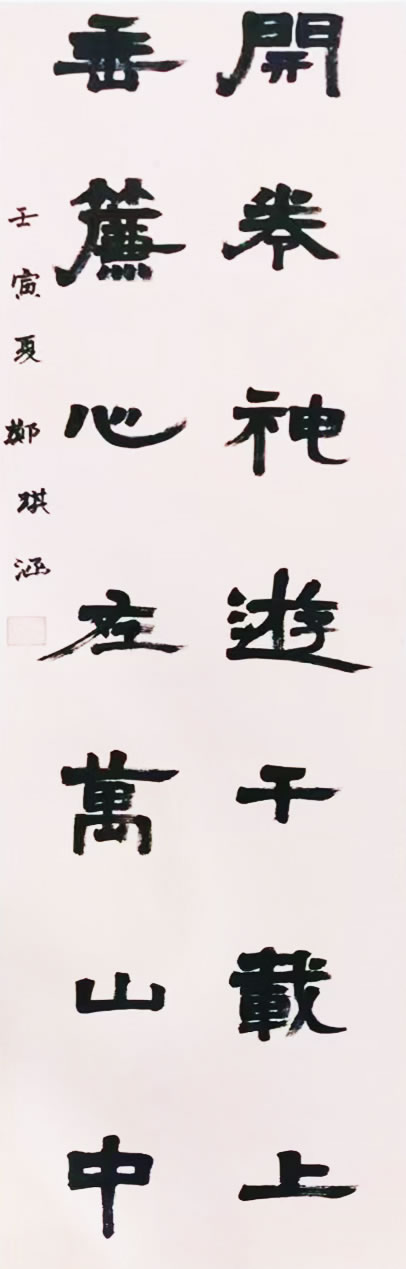 開卷神遊千載上
垂簾心在萬山中
壬寅夏鄭琪涵